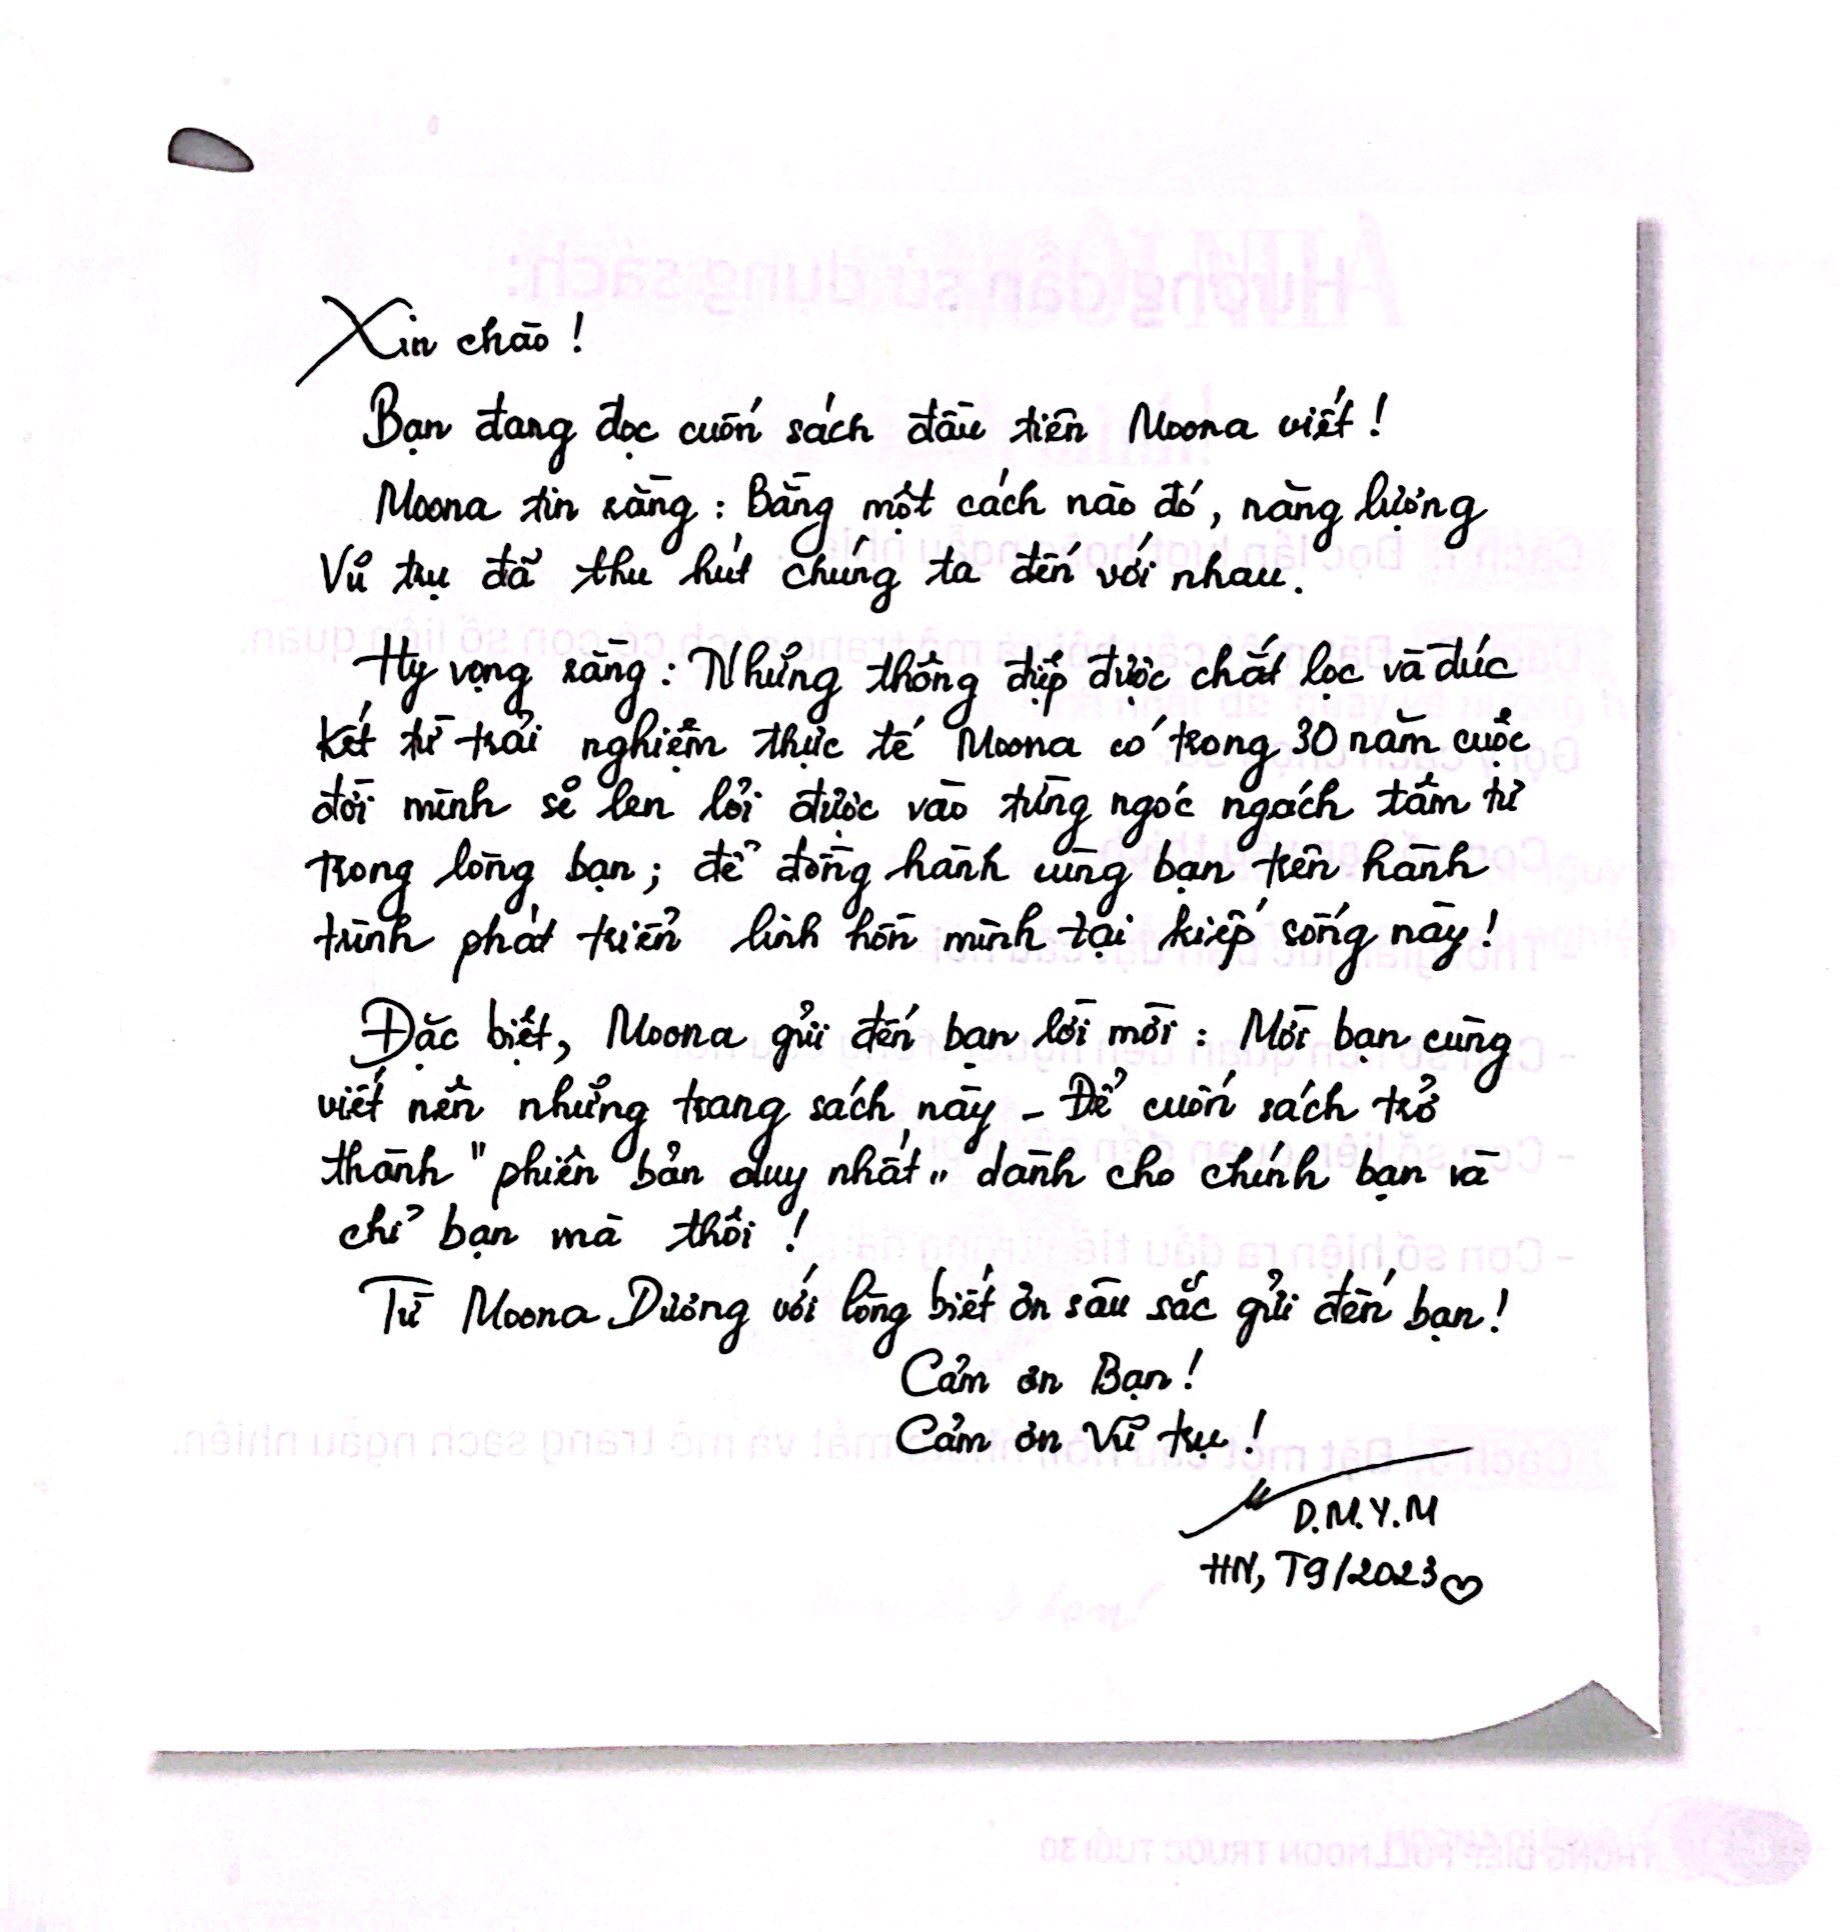 Xin chào !
Bạn đang đọc cuốn sách đầu tiên Moona viết !
Moona tin rằng : Bằng một cách nào đó, năng lượng
Vũ trụ đã thu hút chúng ta đến với nhau.
Hy vọng rằng : Những thông điệp được chắt lọc và đúc
kết từ trải nghiệm thực tế Moona có trong 30 năm cuộc
đời mình sẽ len lỏi được vào từng ngóc ngách tâm tư
trong lòng bạn ; để đồng hành cùng bạn trên hành
trình phát triển linh hồn mình tại kiếp sống này !
Đặc biệt, Moona gửi đến bạn lời mời : Mời bạn cùng
viết nên những trang sách này - Để cuốn sách trở
thành "phiên bản duy nhất" dành cho chính bạn và
chỉ bạn mà thôi !
Từ Moona Dương với lòng biết ơn sâu sắc gửi đến bạn !
Cảm ơn Bạn !
Cảm ơn Vũ trụ !
D.M.Y.M
HN, T9/2023